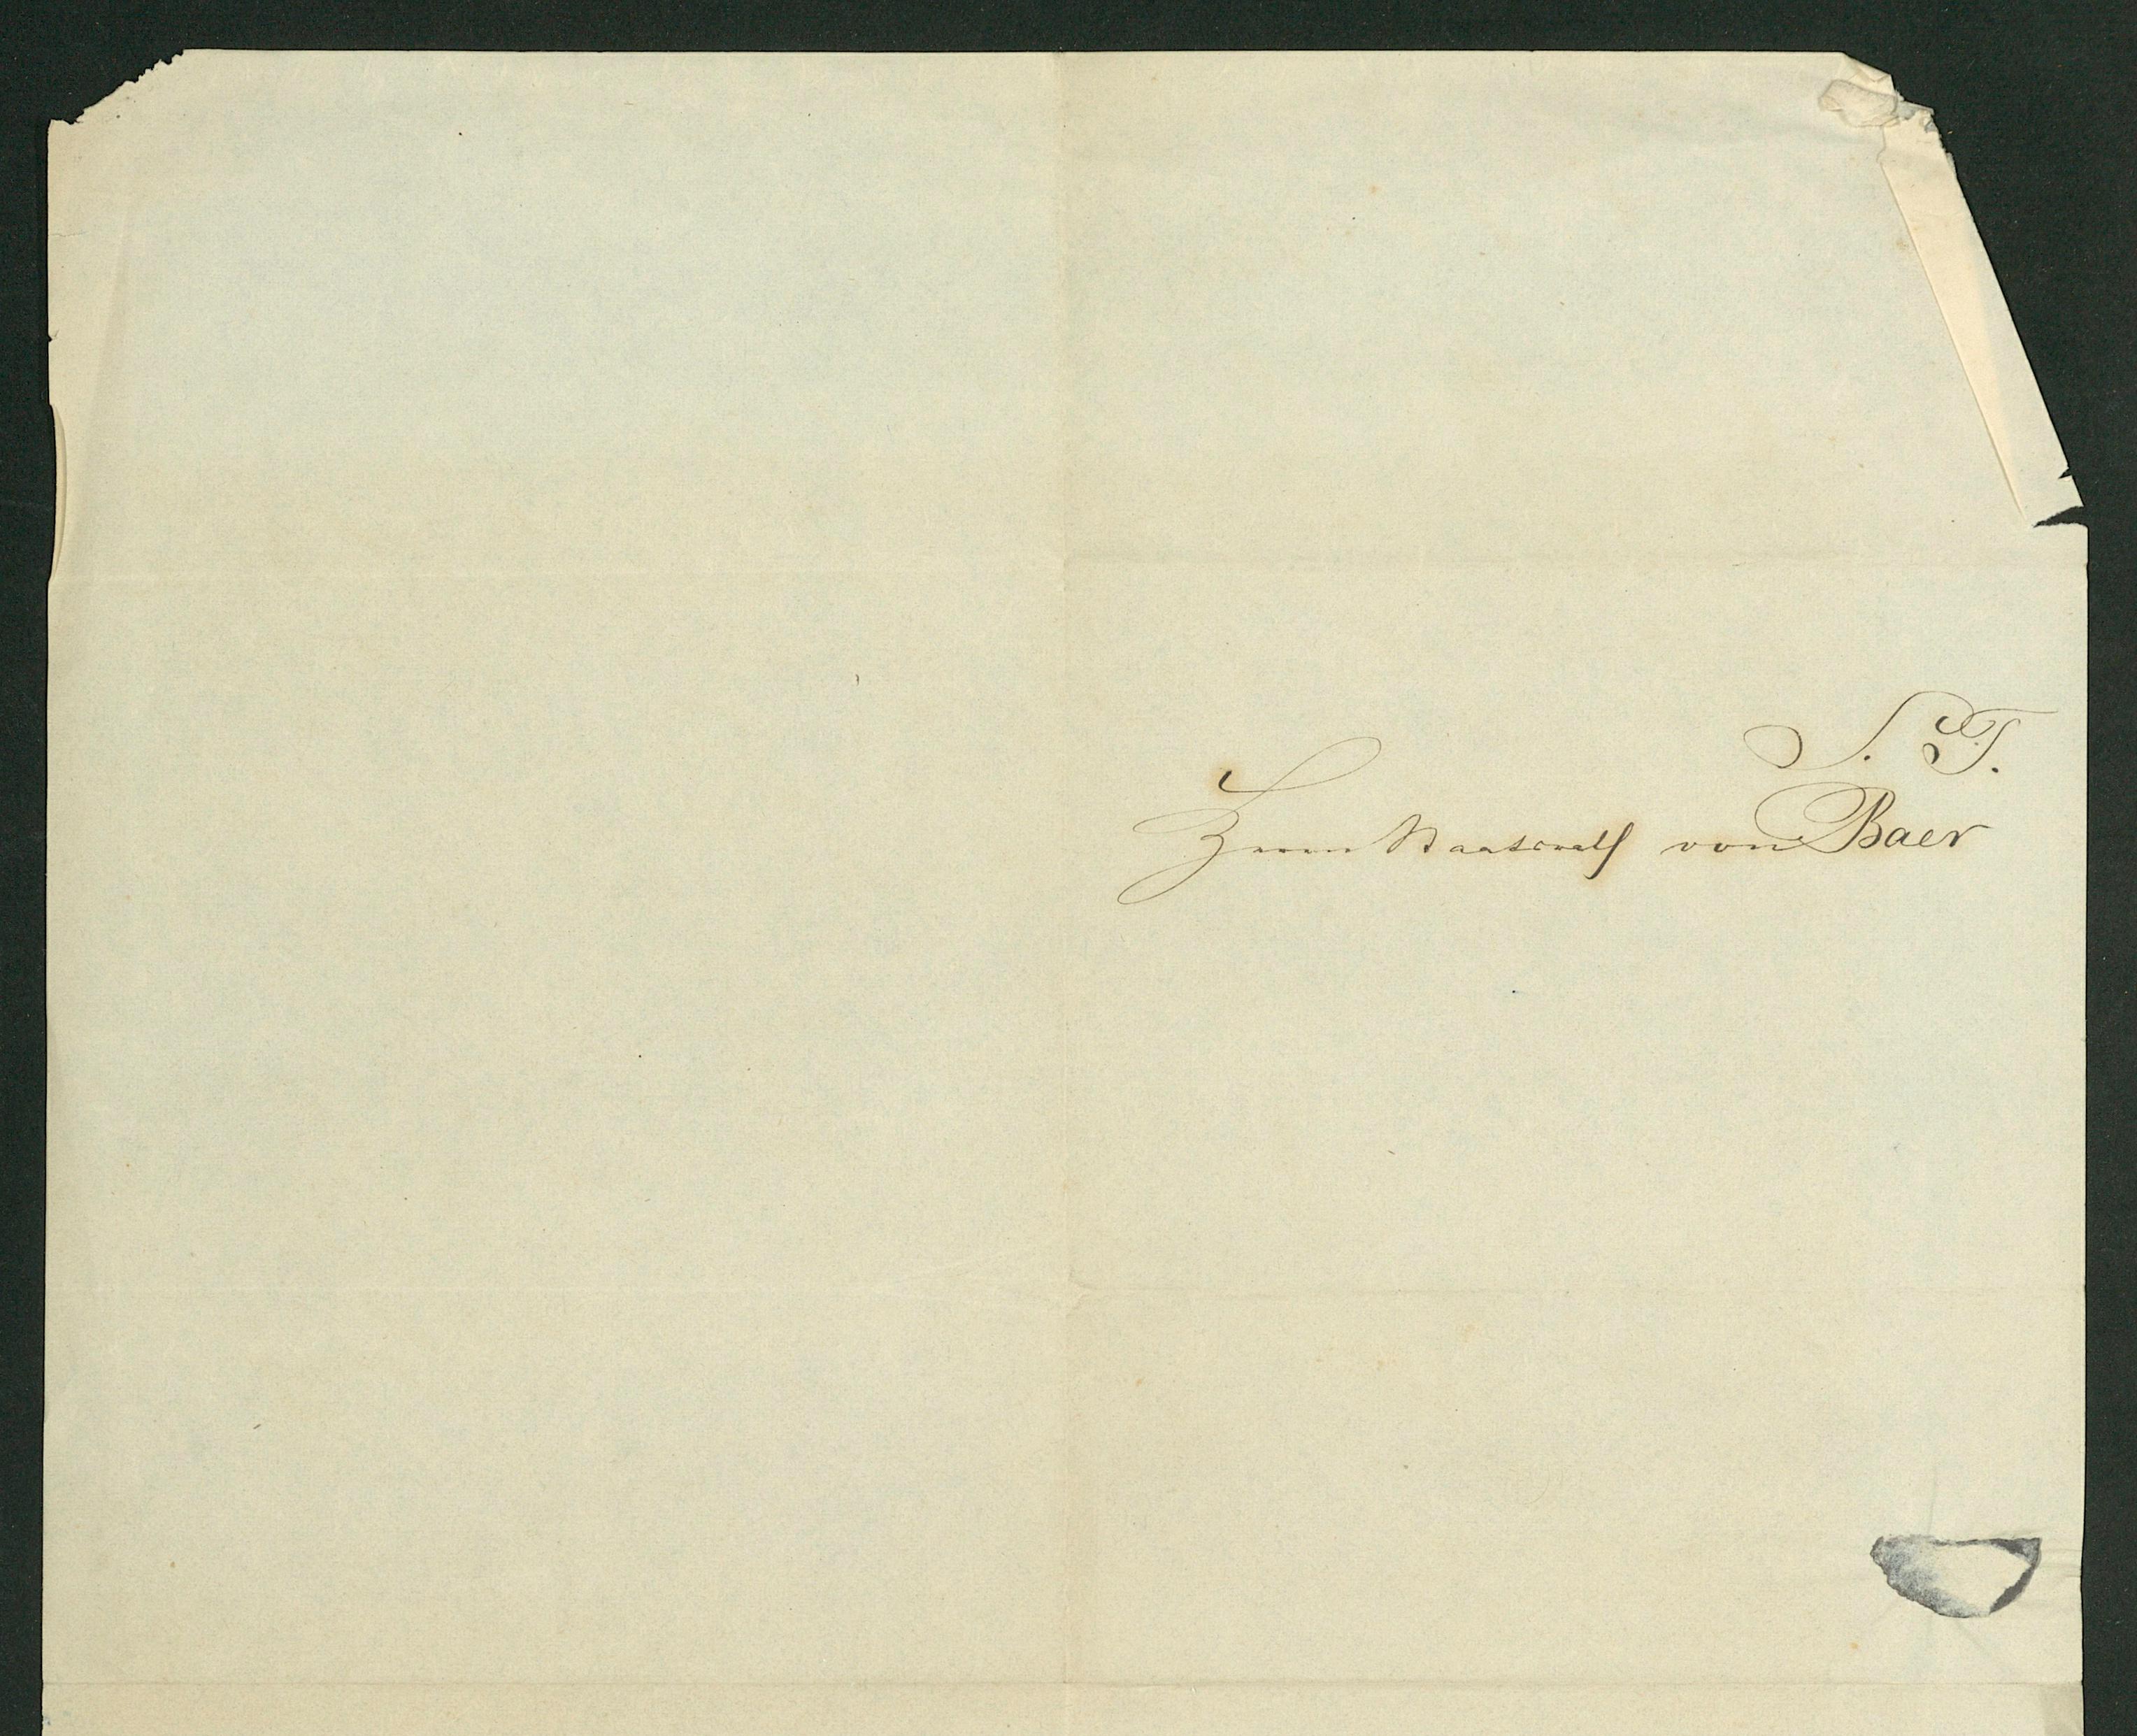 S. T.
Herrn Staatsrath von Baer